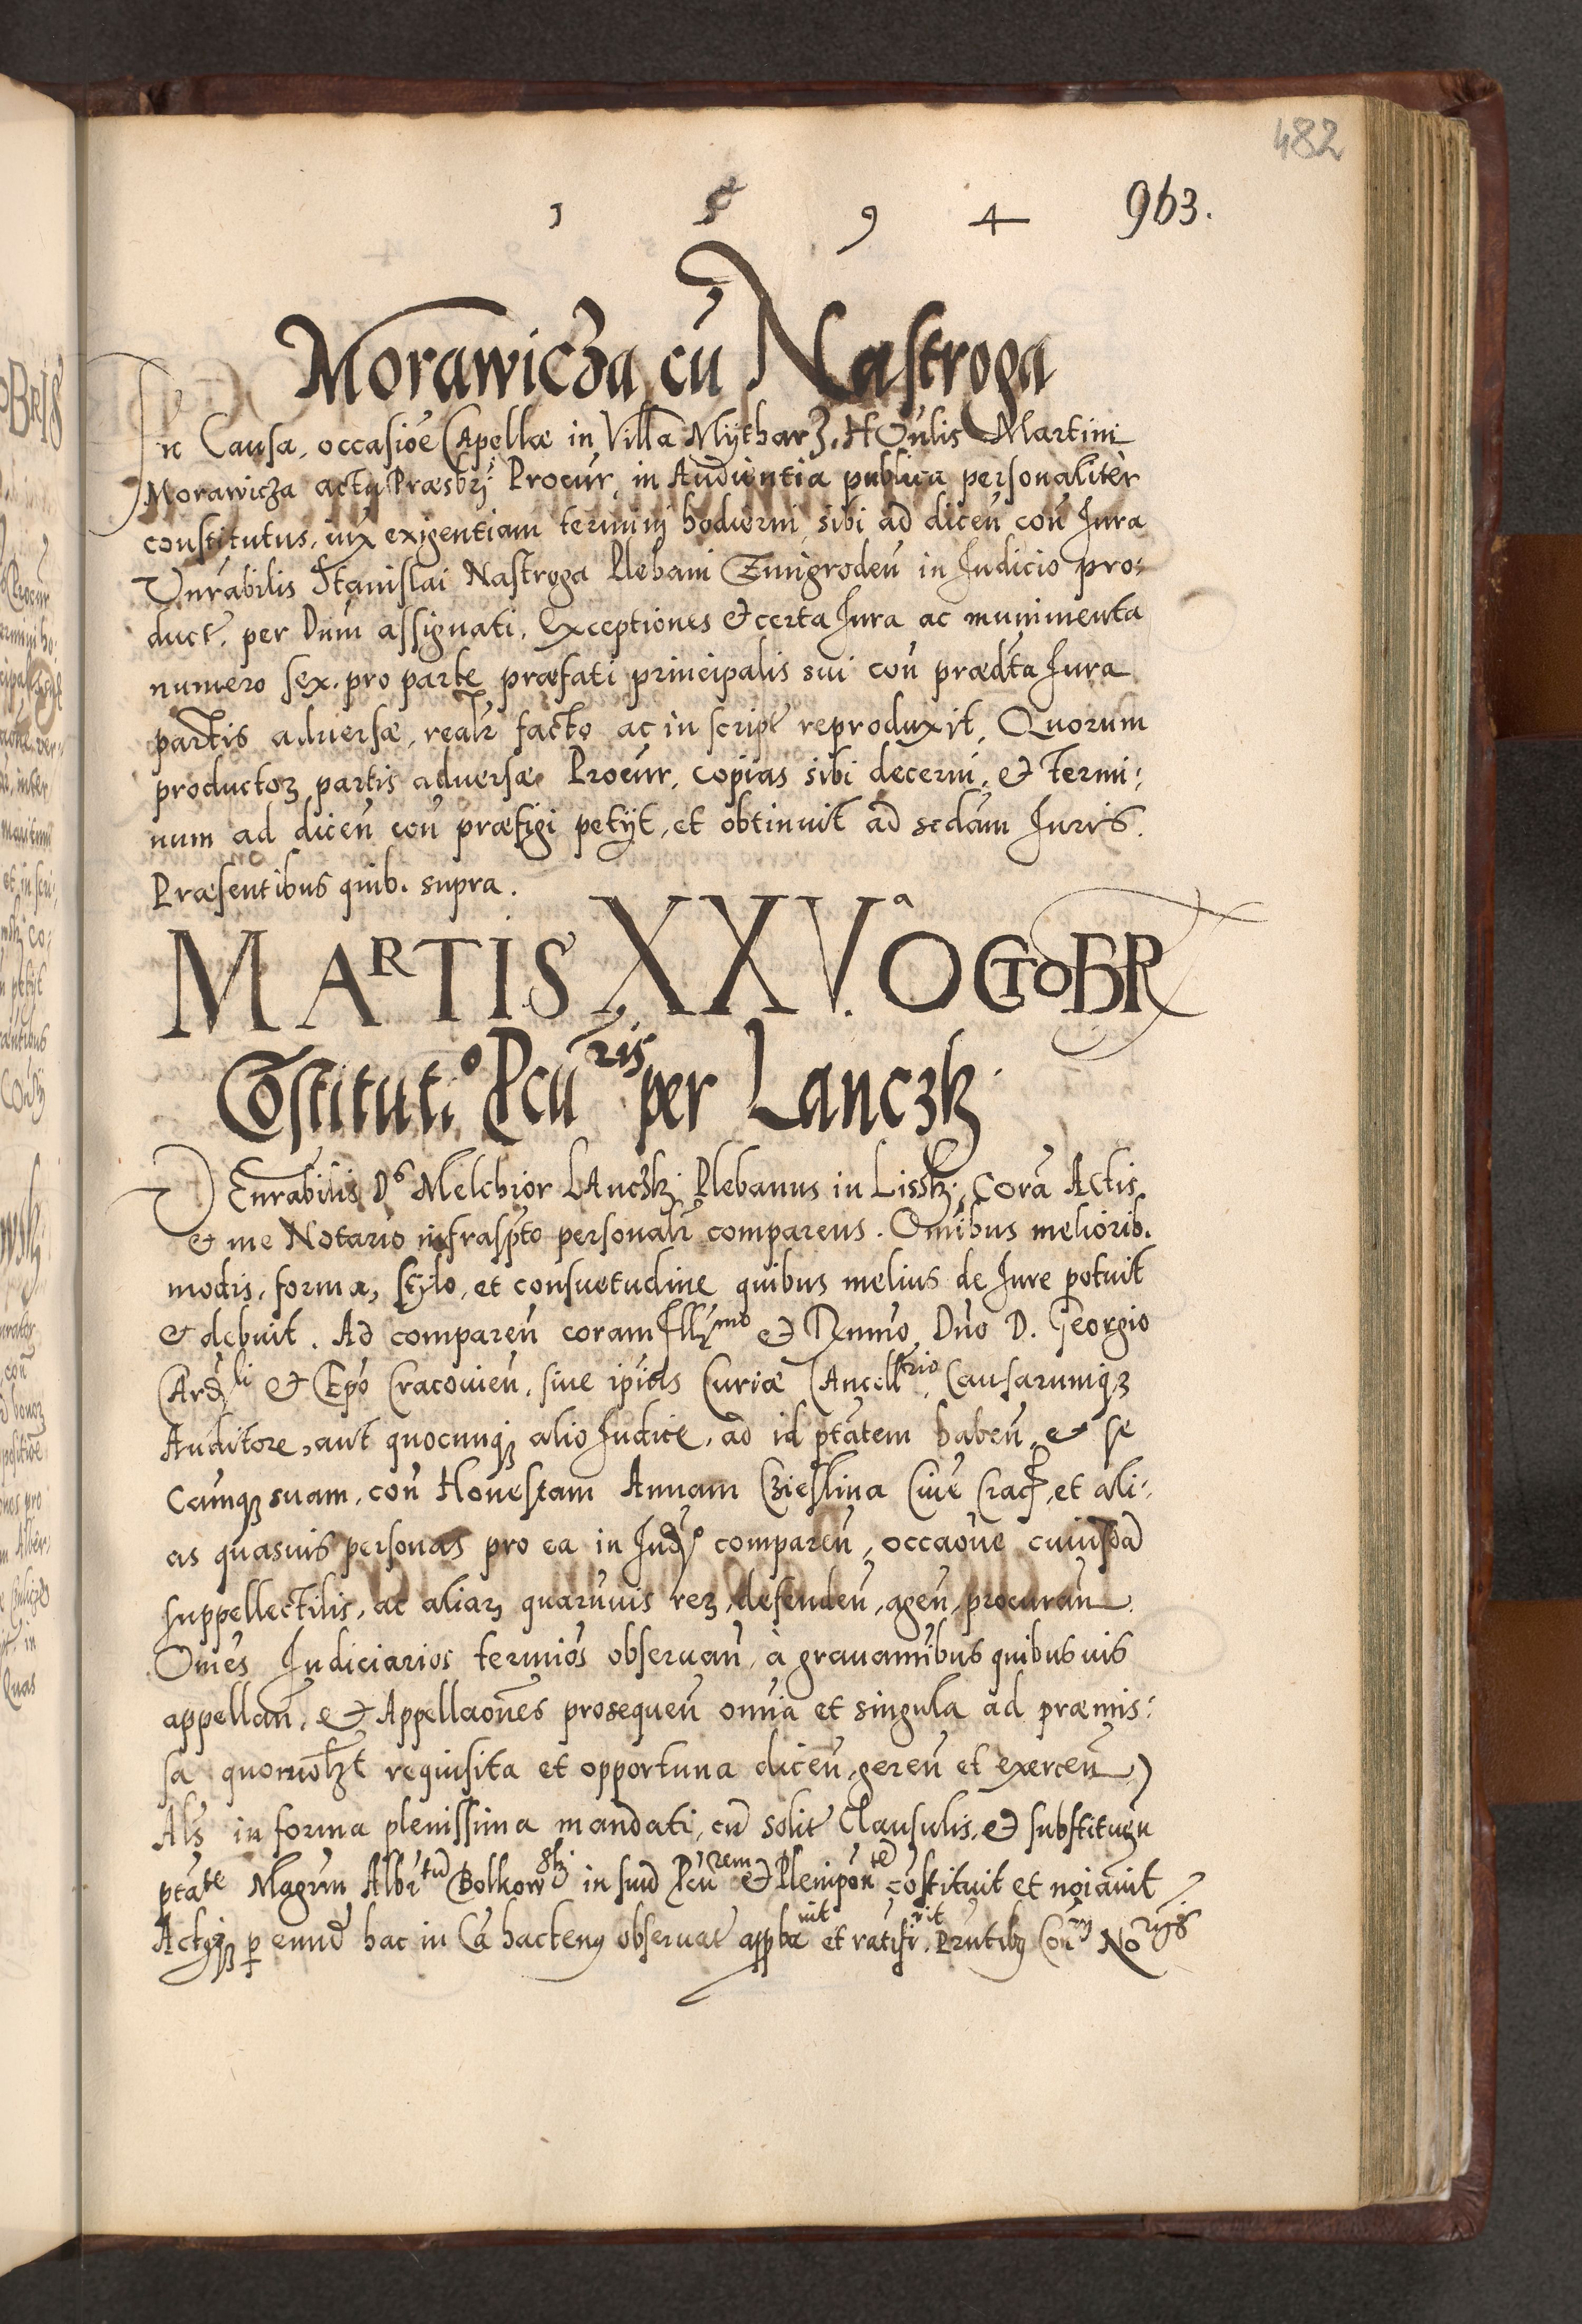 482
1 5 9 4 963.
Morawicza cū Nastroga
In Causa, occasiōe Capellæ in Villa Mÿtharz, HOnlis Martini
Morawicza actu Præsbrj Procur, in Audientia publica personalitèr
constitutus, iux exigentiam termini hodierni, sibi ad diceñ coñ Jura
Vnrabilis Stanislai Nastroga Plebani Zmigrodeñ in Judicio pro:
duct. per Dum assignati, Exceptiones & certa Jura ac munimenta
numero sex. pro parte præfati principalis sui coñ prædta Jura
partis aduersæ, realr facto ac in script reproduxit, Quorum
productoꝝ partis aduersæ Procur, copias sibi decerni, & Termi:
num ad diceñ coñ præfigi petijt, et obtinuit ad sedam Juris.
Præsentibus quib. supra.
MARTIS XXV.ᵃ OCTOBR
Cōstitutio Pcuris per Lanczk
VEnrabilis Ds Melchior LAnczk Plebanus in Lissk, Corā Actis
& me Notario infraspto personalr comparens. Omibus meliorib.
modis, forma, stylo, et consuetudine quibus melius de Jure potuit
& debuit. Ad compareñ coram Illmo & Rmmo Dno D. Georgio
CArdli & Epo Cracouieñ, siue ipius Curiæ CAncellrio, Causarumqꝫ
Auditore, aut quocunqꝫ alio Judice, ad id ptātem habeñ, & se
Camqꝫ suam, coñ Honestam Annam Czieslina Ciue Crac, et ali:
as quasuis personas pro ea in Judo compareñ, occaone cuiusdā
suppellectilis, ac aliaꝝ quaruuis reꝝ, defendeñ, ageñ, procurañ
Omēs Judiciarios termios obseruañ, à grauamibus quibusuis
appellañ, & Appellaones prosequeñ omia et singula ad præmis:
sa quomolꝫt requisita et opportuna diceñ, gereñ et exerceñ)
Als in forma plenissima mandati, cū solit Clausulis, & substitueñ
ptāte Magrm Albrtū Bolkowsk in suū Pcurem & Plenipontē cōstituit et noiauit
Actqꝫ per eundē hac in Cā hactenꝰ obseruat appbauit et ratifiuit. Prntibꝫ Con Norijs